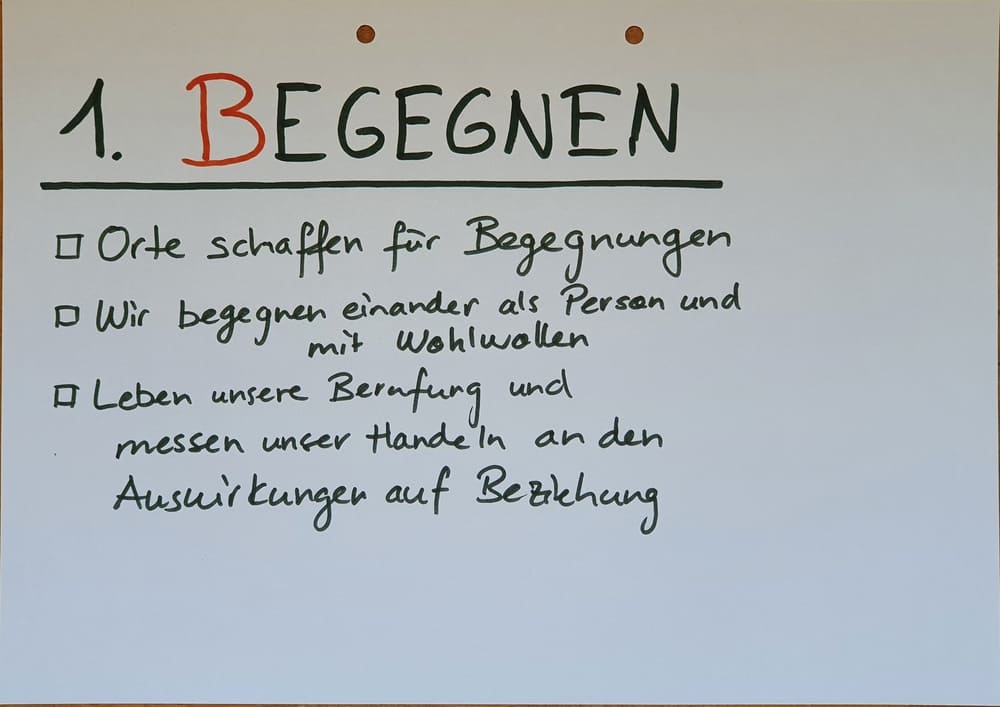 1. BEGEGNEN
□ Orte schaffen für Begegnungen
□ Wir begegnen einander als Person und
mit Wohlwollen
□ Leben unsere Berufung und
messen unser Handeln an den
Auswirkungen auf Beziehung